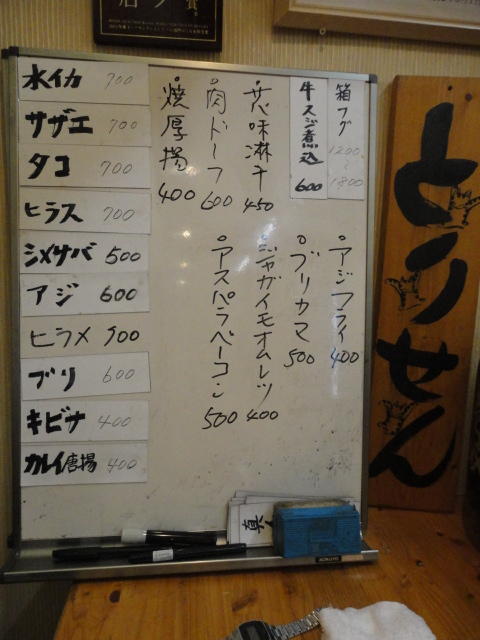 水イカ 700
サザエ 700
タコ 700
ヒラス 700
シメサバ 500
アジ 600
ヒラメ 900
ブリ 600
キビナ 400
カレイ唐揚 400
箱フグ 1200~1800
牛スジ煮込 600
味淋干 450
肉ドーフ 600
焼厚揚 400
アジフライ 400
ブリカマ 500
ジャガイモオムレツ 400
アスパラベーコン 500
真
とりせん